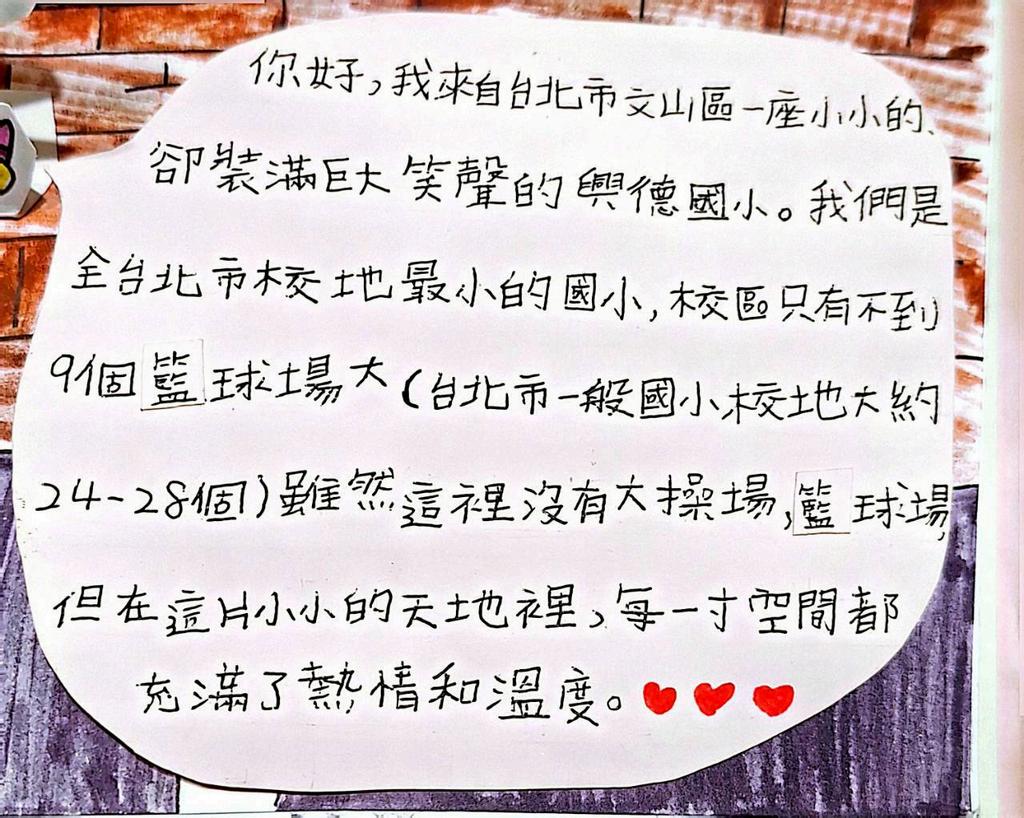 你好,我來自台北市文山區一座小小的、
卻裝滿巨大笑聲的興德國小。我們是
全台北市校地最小的國小,校區只有不到
9個籃球場大(台北市一般國小校地大約
24-28個)雖然這裡沒有大操場,籃球場,
但在這片小小的天地裡,每一寸空間都
充滿了熱情和溫度。